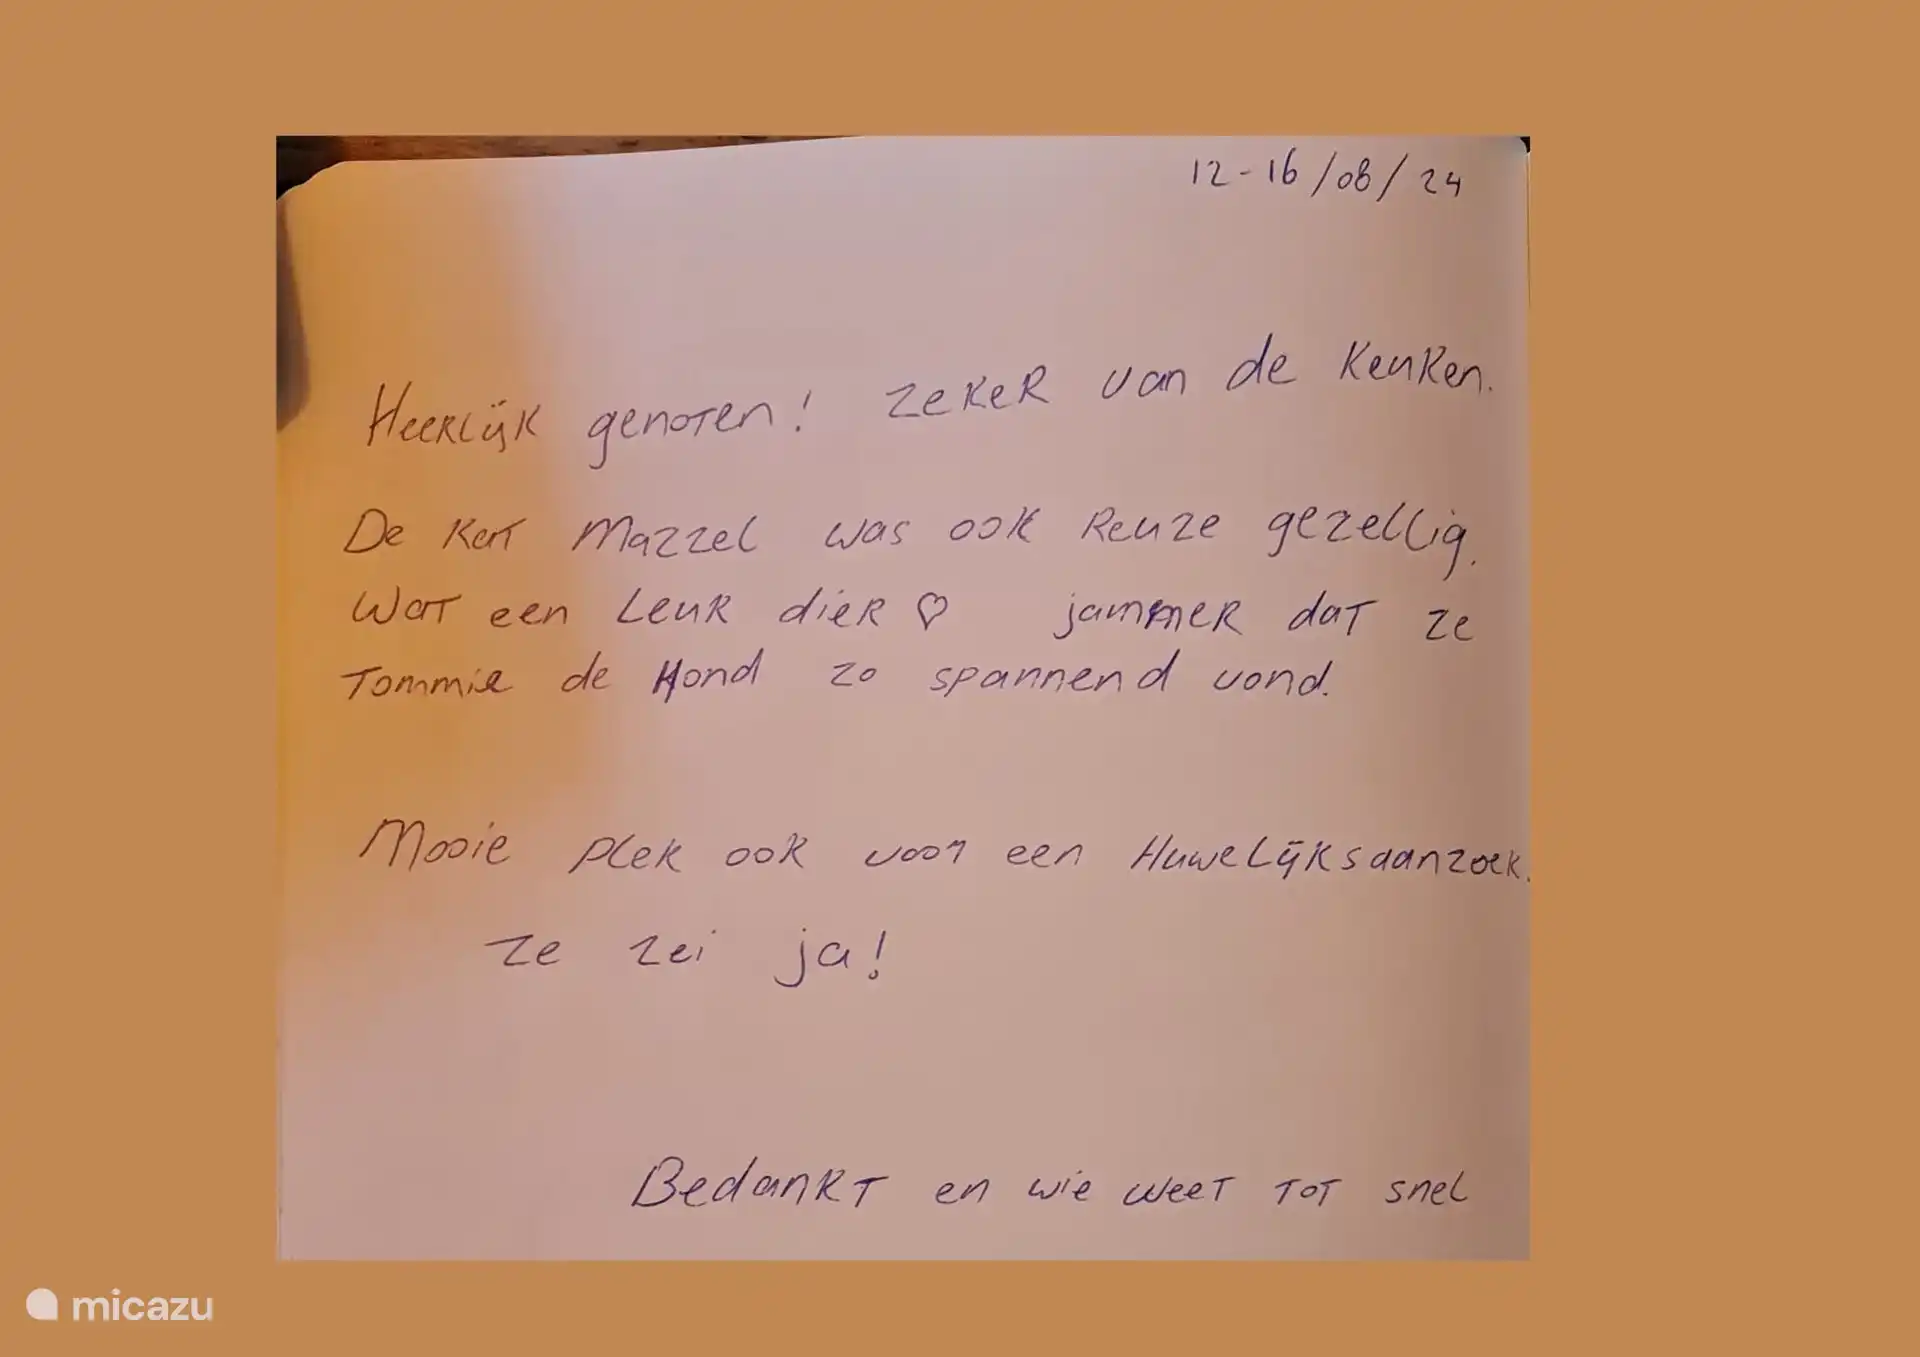 12-16/08/24
Heerlijk genoten! Zeker van de keuken.
De kat Mazzel was ook reuze gezellig.
Wat een leuk dier ♡ jammer dat ze
Tommie de Hond zo spannend vond.
Mooie plek ook voor een Huwelijksaanzoek.
Ze zei ja!
Bedankt en wie weet tot snel
micazu